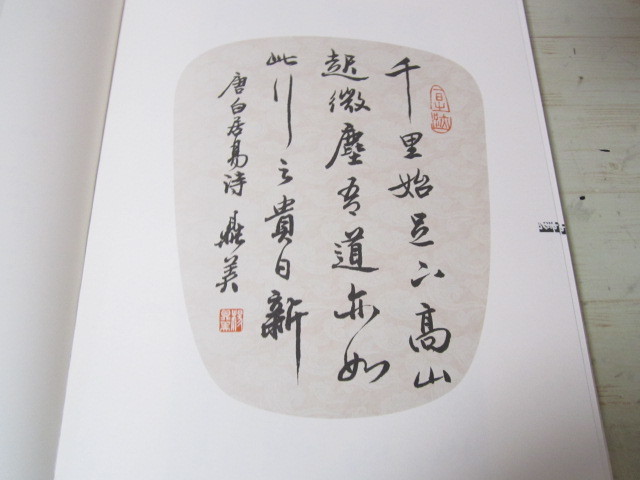 千里始足下高山
起微塵吾道亦如
此行之貴日新
唐白居易詩 鼎美